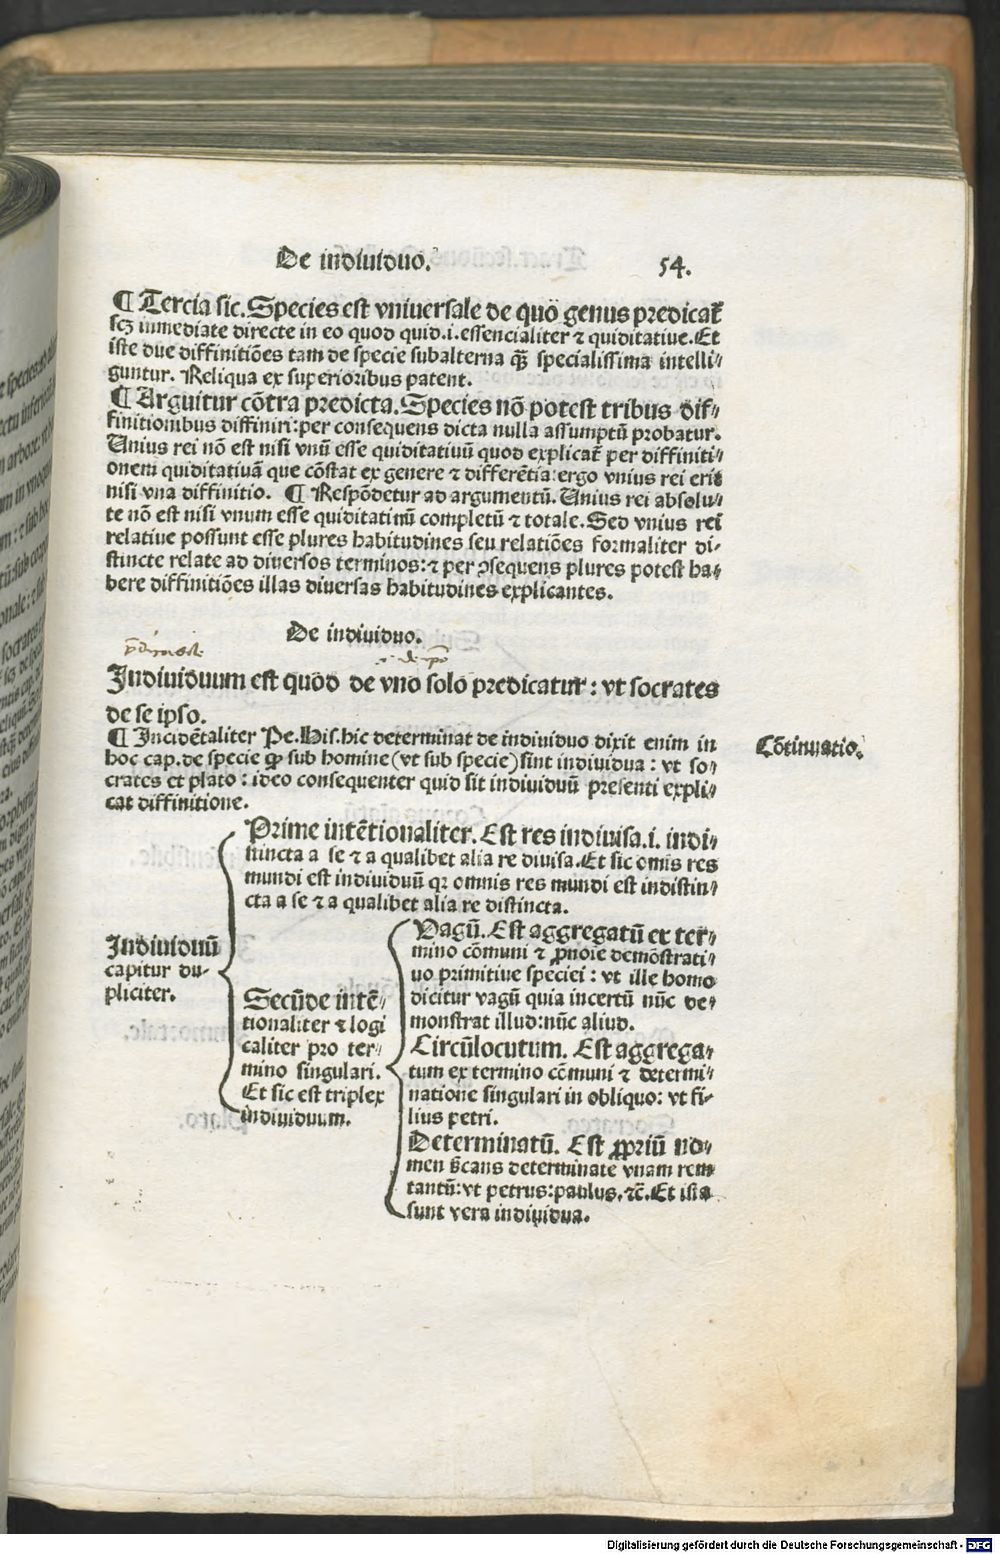 De indiuiduo.
54.
¶ Tercia sic. Species est vniuersale de quo genus predicat᷑
scꝫ inmediate directe in eo quod quid .i. essencialiter ⁊ quiditatiue. Et
iste due diffinitiões tam de specie subalterna q̄ꝫ specialissima intelli⸗
guntur. Reliqua ex superioribus patent.
¶ Arguitur cõtra predicta. Species nõ potest tribus dif⸗
finitionibus diffiniri: per consequens dicta nulla assumptũ probatur.
Unius rei nõ est nisi vnũ esse quiditatiuũ quod explicat᷑ per diffiniti⸗
onem quiditatiuã que cõstat ex genere ⁊ differẽtia: ergo vnius rei erit
nisi vna diffinitio. ¶ Respõdetur ad argumentũ. Unius rei absolu⸗
te nõ est nisi vnum esse quiditatiuũ completũ ⁊ totale. Sed vnius rei
relatiue possunt esse plures habitudines seu relatiões formaliter di⸗
stincte relate ad diuersos terminos: ⁊ per ꝯsequens plures potest ha⸗
bere diffinitiões illas diuersas habitudines explicantes.
De indiuiduo.
Indiuiduum est quod de vno solo predicatur: vt socrates
de se ipso.
¶ Incidẽtaliter Pe. His. hic determinat de indiuiduo dixit enim in
hoc cap. de specie ꝙ sub homine (vt sub specie) sint indiuidua: vt so⸗
crates et plato: ideo consequenter quid sit indiuiduũ presenti expli⸗
cat diffinitione.
Cõtinuatio.
Indiuiduũ
capitur du⸗
pliciter.
Prime intẽtionaliter. Est res indiuisa .i. indi⸗
stincta a se ⁊ a qualibet alia re diuisa. Et sic omis res
mundi est indiuiduũ qꝛ omnis res mundi est indistin⸗
cta a se ⁊ a qualibet alia re distincta.
Secũde intẽ⸗
tionaliter ⁊ logi
caliter pro ter⸗
mino singulari.
Et sic est triplex
indiuiduum.
Vagũ. Est aggregatũ ex ter⸗
mino cõmuni ⁊ ꝓnoĩe demõstrati⸗
uo primitiue speciei: vt ille homo
dicitur vagũ quia incertũ nũc de⸗
monstrat illud: nũc aliud.
Circũlocutum. Est aggrega⸗
tum ex termino cõmuni ⁊ determi⸗
natione singulari in obliquo: vt fi⸗
lius petri.
Determinatũ. Est ꝓpriũ no⸗
men s̃cans determinate vnam rem
tantũ: vt petrus: paulus, ⁊c̃. Et ista
sunt vera indiuidua.
Digitalisierung gefördert durch die Deutsche Forschungsgemeinschaft - DFG